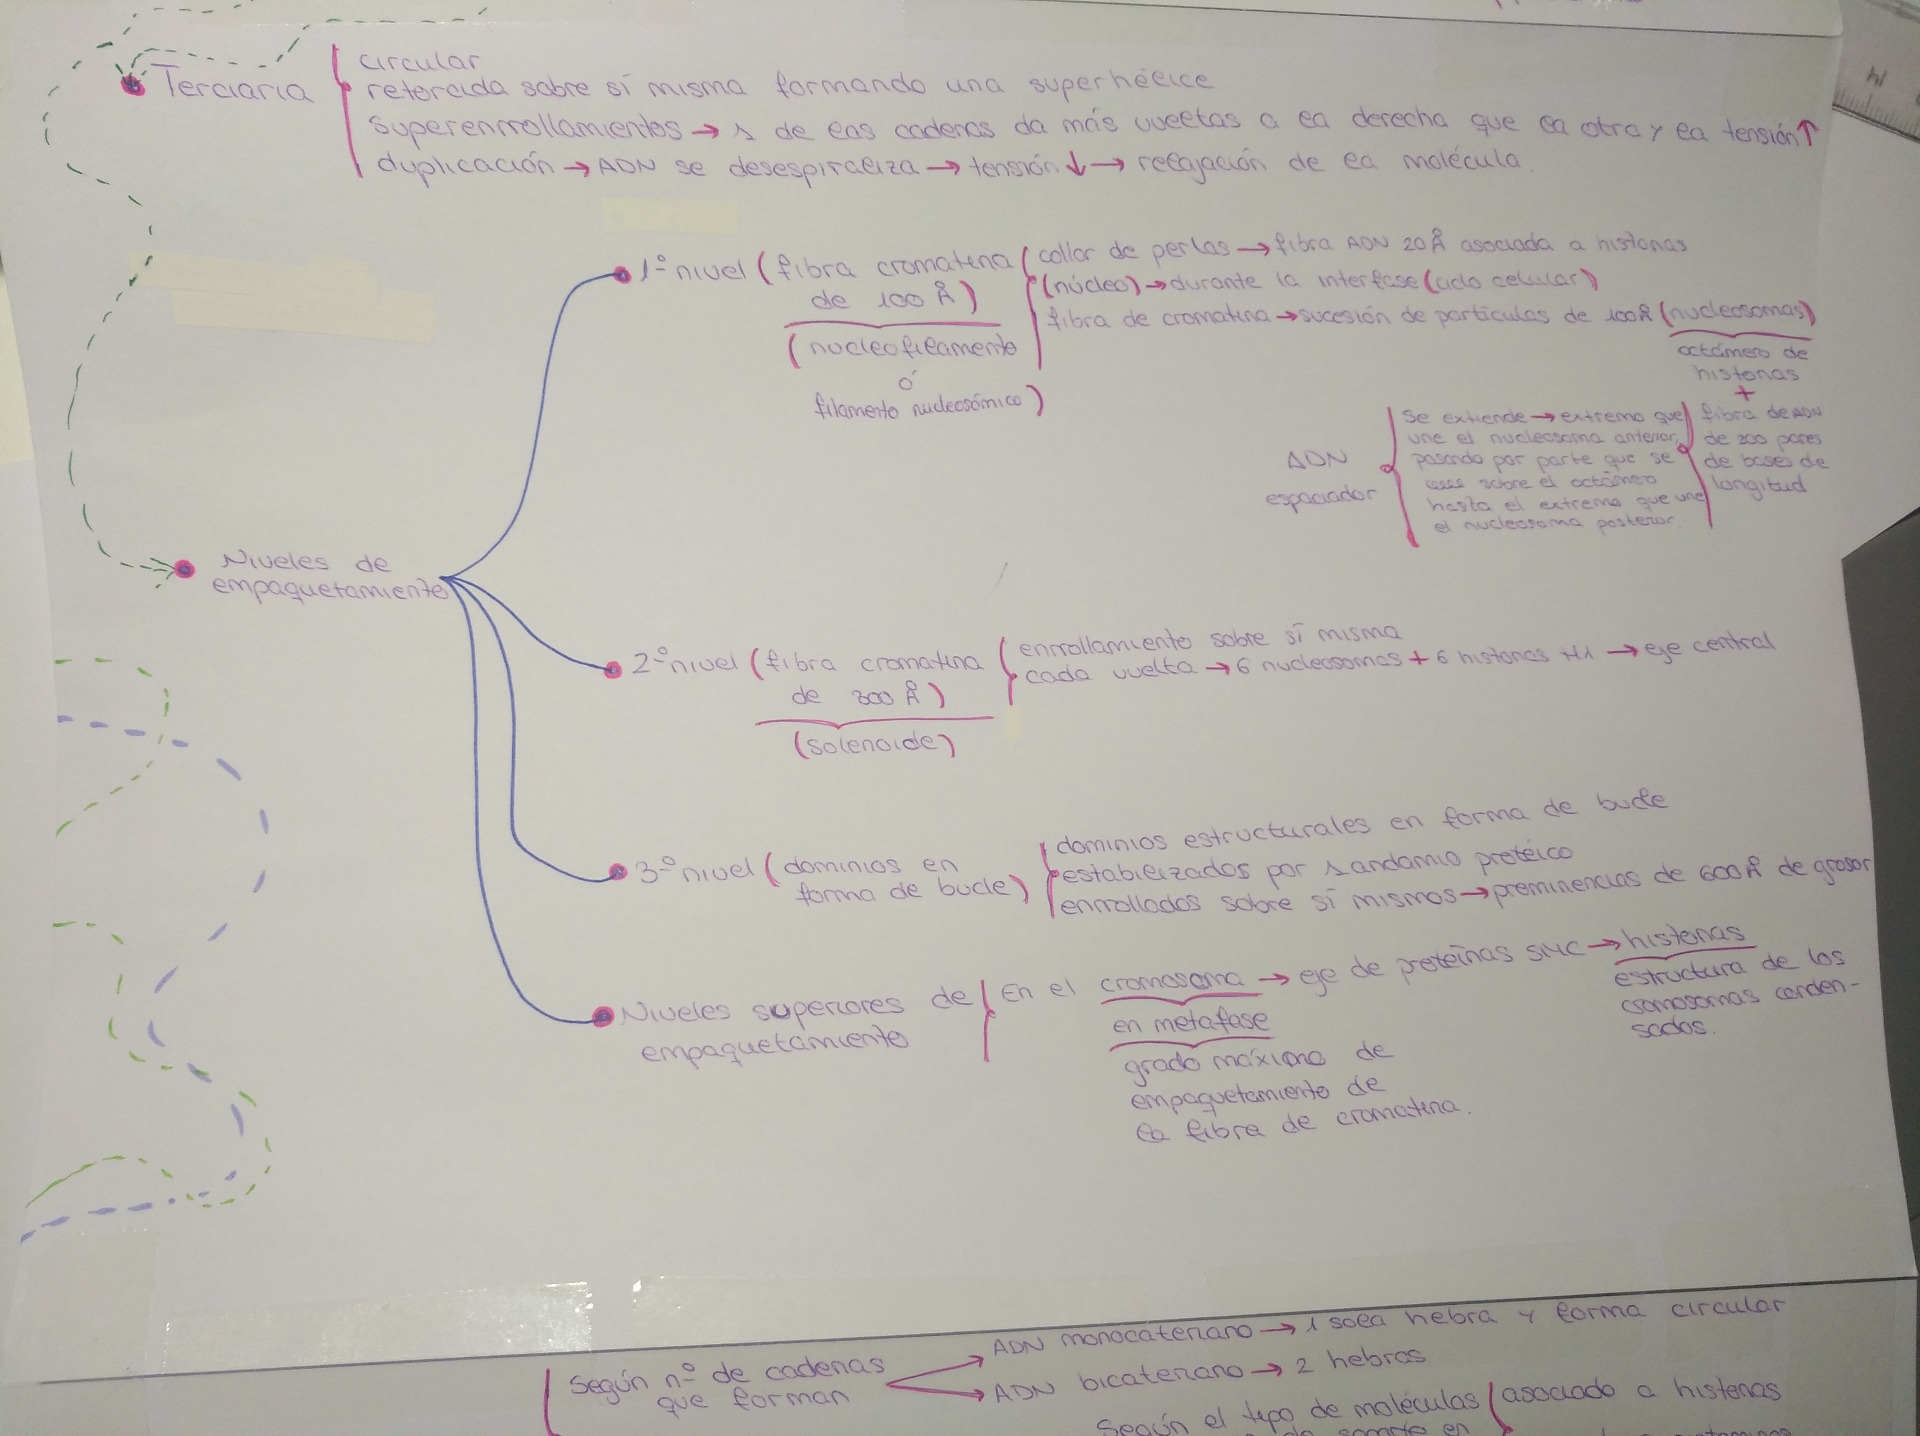 Terciaria
circular
retorcida sobre sí misma formando una superhélice
superenrrollamientos → 1 de las cadenas da más vueltas a la derecha que la otra y la tensión ↑
duplicación → ADN se desespiraliza → tensión ↓ → relajación de la molécula.
Niveles de
empaquetamiento
1º nivel (fibra cromatina
de 100 Å)
(nucleofilamento
ó
filamento nucleosómico)
collar de perlas → fibra ADN 20 Å asociada a histonas
(núcleo) → durante la interfase (ciclo celular)
fibra de cromatina → sucesión de partículas de 100 Å (nucleosomas)
octámero de
histonas
+
fibra de ADN
de 200 pares
de bases de
longitud
ADN
espaciador
Se extiende → extremo que
une el nucleosoma anterior,
pasando por parte que se
sobre el octámero
hasta el extremo que une
el nucleosoma posterior.
2º nivel (fibra cromatina
de 300 Å)
(solenoide)
enrrollamiento sobre sí misma
cada vuelta → 6 nucleosomas + 6 histonas H1 → eje central
3º nivel (dominios en
forma de bucle)
dominios estructurales en forma de bucle
estabilizados por 1 andamio protéico
enrrollados sobre sí mismos → prominencias de 600 Å de grosor
Niveles superiores de
empaquetamiento
En el cromosoma → eje de proteínas SMC → histonas
en metafase
grado máximo de
empaquetamiento de
la fibra de cromatina.
estructura de los
cromosomas conden-
sados.
Según nº de cadenas
que forman
ADN monocatenario → 1 sola hebra y forma circular
ADN bicatenario → 2 hebras
Según el tipo de moléculas
asociado a histonas
14